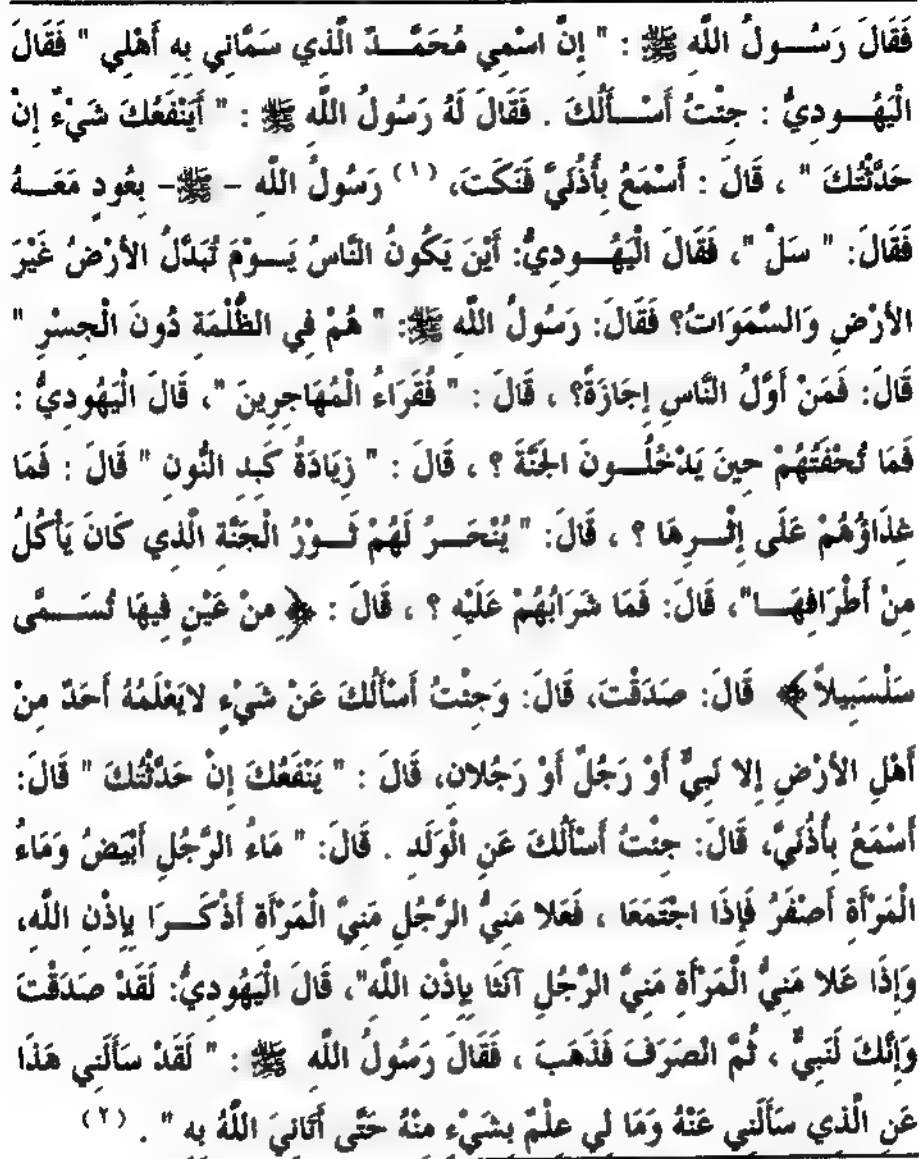 فَقَالَ رَسُولُ اللَّه ﷺ : " إِنَّ اسْمِي مُحَمَّدٌ الَّذي سَمَّاني به أَهْلي " فَقَالَ
الْيَهُوديُّ : جئْتُ أَسْأَلُكَ . فَقَالَ لَهُ رَسُولُ اللَّه ﷺ : " أَيَنْفَعُكَ شَيْءٌ إنْ
حَدَّثْتُكَ " ، قَالَ : أَسْمَعُ بأُذُنَيَّ فَنَكَتَ، (١) رَسُولُ اللَّه – ﷺ– بعُود مَعَهُ
فَقَالَ: " سَلْ "، فَقَالَ الْيَهُوديُّ: أَيْنَ يَكُونُ النَّاسُ يَوْمَ تُبَدَّلُ الأرْضُ غَيْرَ
الأرْض وَالسَّمَوَاتُ؟ فَقَالَ: رَسُولُ اللَّه ﷺ: " هُمْ في الظُّلْمَة دُونَ الْجسْر "
قَالَ: فَمَنْ أَوَّلُ النَّاس إجَازَةً؟ ، قَالَ : " فُقَرَاءُ الْمُهَاجرينَ "، قَالَ الْيَهُوديُّ :
فَمَا تُحْفَتُهُمْ حينَ يَدْخُلُونَ الجَنَّةَ ؟ ، قَالَ : " زيَادَةُ كَبد النُّون " قَالَ : فَمَا
غذَاؤُهُمْ عَلَى إثْرهَا ؟ ، قَالَ: " يُنْحَرُ لَهُمْ ثَوْرُ الْجَنَّة الَّذي كَانَ يَأْكُلُ
منْ أَطْرَافهَا"، قَالَ: فَمَا شَرَابُهُمْ عَلَيْه ؟ ، قَالَ : ﴿ منْ عَيْنٍ فيهَا تُسَمَّى
سَلْسَبيلاً ﴾ قَالَ: صَدَقْتَ، قَالَ: وَجئْتُ أَسْأَلُكَ عَنْ شَيْءٍ لايَعْلَمُهُ أَحَدٌ منْ
أَهْل الأرْض إلا نَبيٌّ أَوْ رَجُلٌ أَوْ رَجُلان، قَالَ : " يَنْفَعُكَ إنْ حَدَّثْتُكَ " قَالَ:
أَسْمَعُ بأُذُنَيَّ، قَالَ: جئْتُ أَسْأَلُكَ عَن الْوَلَد . قَالَ: " مَاءُ الرَّجُل أَبْيَضُ وَمَاءُ
الْمَرْأَة أَصْفَرُ فَإذَا اجْتَمَعَا ، فَعَلا مَنيُّ الرَّجُل مَنيَّ الْمَرْأَة أَذْكَرَا بإذْن اللَّه،
وَإذَا عَلا مَنيُّ الْمَرْأَة مَنيَّ الرَّجُل آنَثَا بإذْن اللَّه"، قَالَ الْيَهُوديُّ: لَقَدْ صَدَقْتَ
وَإنَّكَ لَنَبيٌّ ، ثُمَّ انْصَرَفَ فَذَهَبَ ، فَقَالَ رَسُولُ اللَّه ﷺ : " لَقَدْ سَأَلَني هَذَا
عَن الَّذي سَأَلَني عَنْهُ وَمَا لي علْمٌ بشَيْء منْهُ حَتَّى أَتَانيَ اللَّهُ به " . (٢)